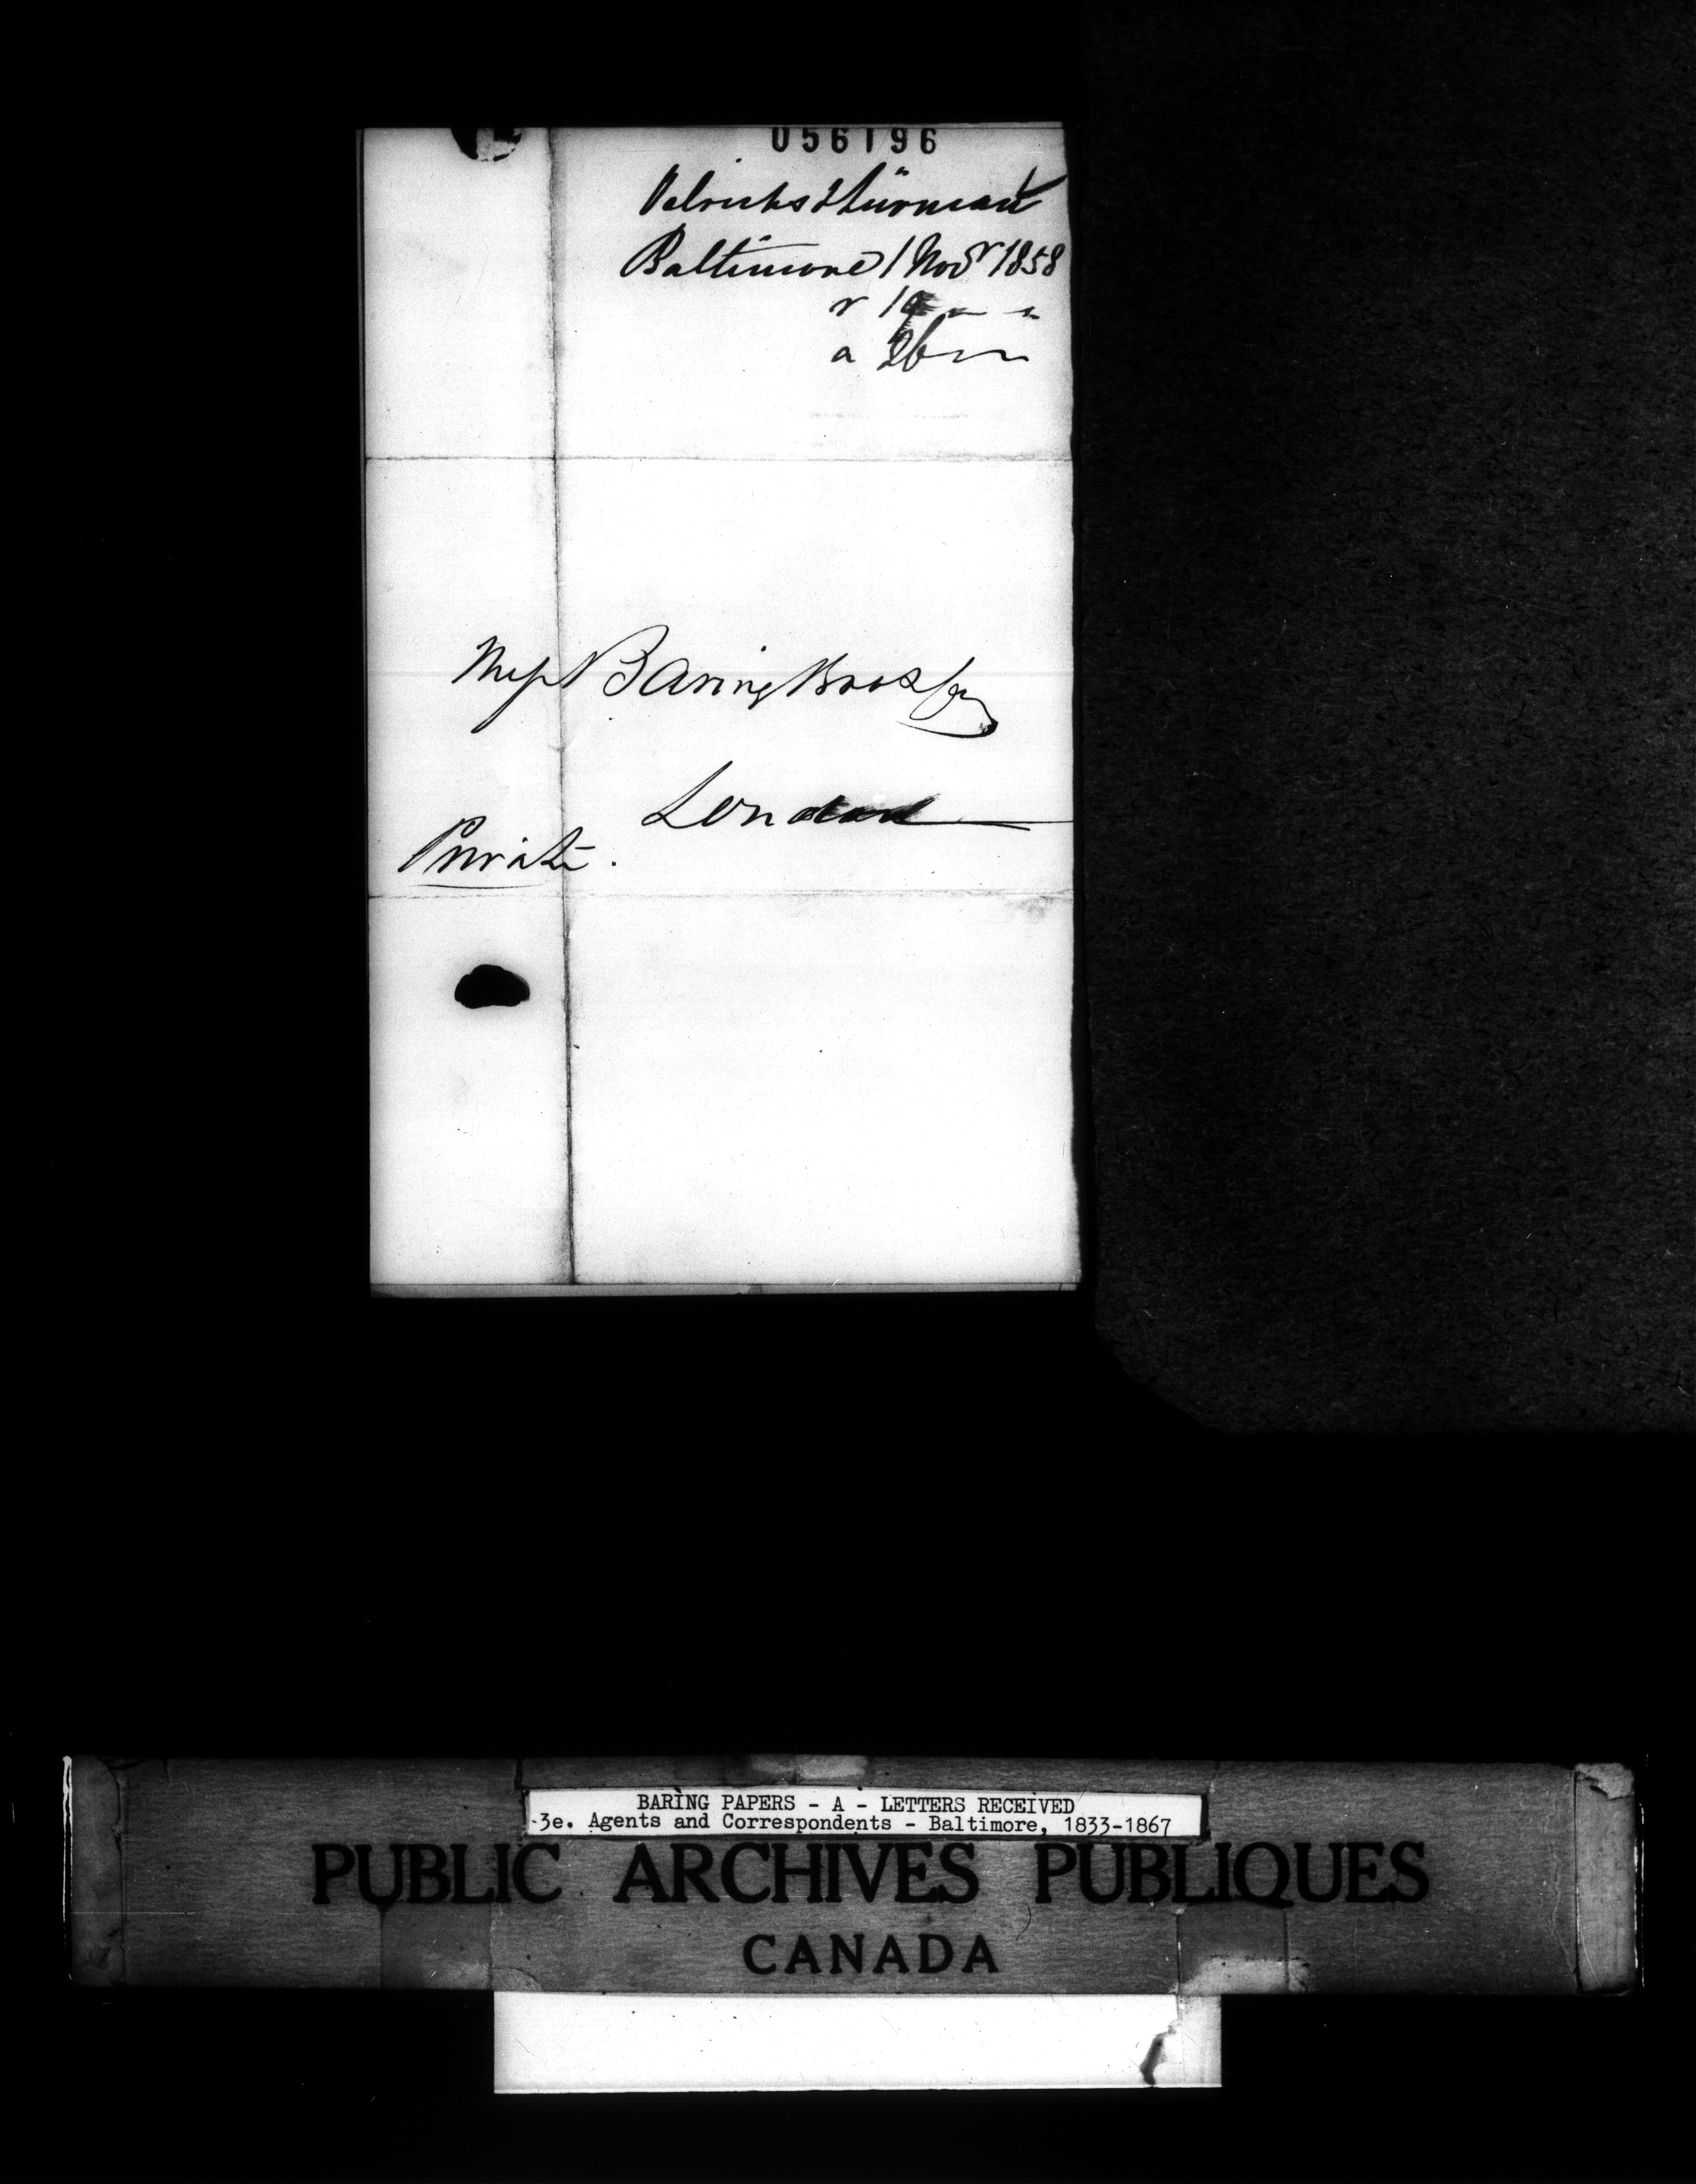 056196
Oelrichs & Lürman
Baltimore 1 Novr 1858
r 19 " "
a 26 " "
Messrs Baring Bros & Co
London
Private.
BARING PAPERS - A - LETTERS RECEIVED
-3e. Agents and Correspondents - Baltimore, 1833-1867
PUBLIC ARCHIVES PUBLIQUES
CANADA